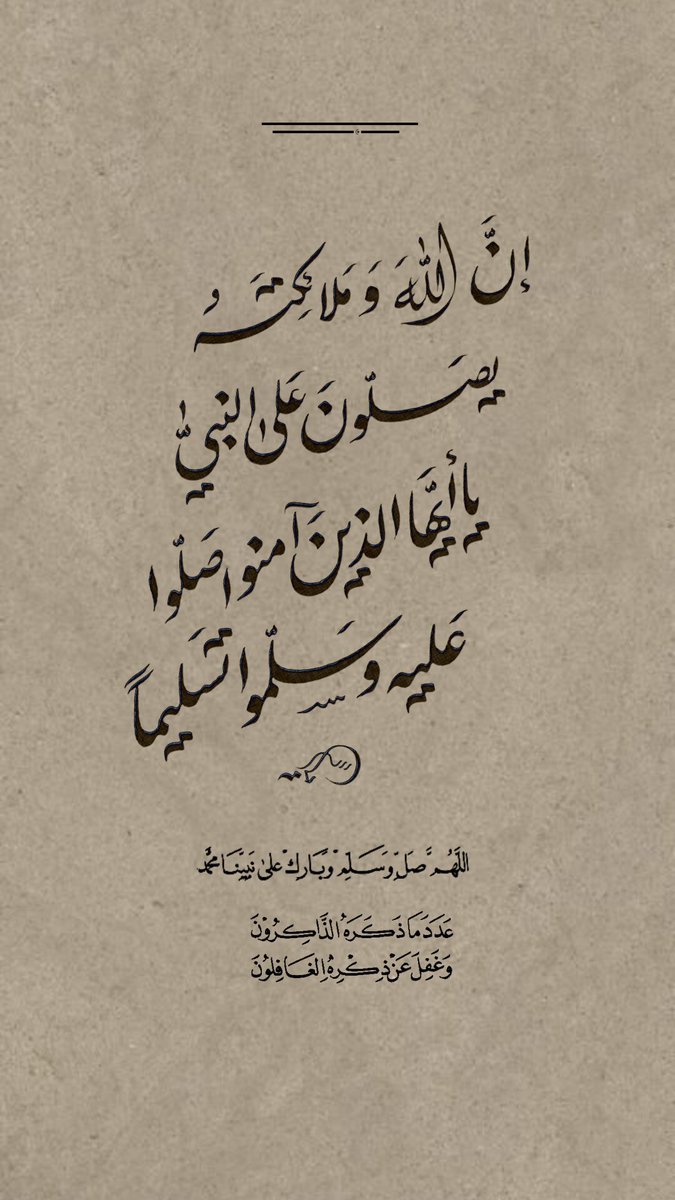 إنَّ اللهَ وَ مَلائِكتَهُ
يصَلّونَ عَلىٰ النبيّ
يا أيّهَا الذينَ آمنوا صَلّوا
عَليه وسَلّموا تَسَليماً
اللَّهُمَّ صَلِّ وَسَلِّمْ وَبَارِكْ عَلىٰ نَبِيِّنَا مُحَمَّد
عَدَدَ مَا ذَكَرَهُ الذَّاكِرُوْنَ
وَغَفِلَ عَنْ ذِكْرِهُ الغَافِلُوْنَ